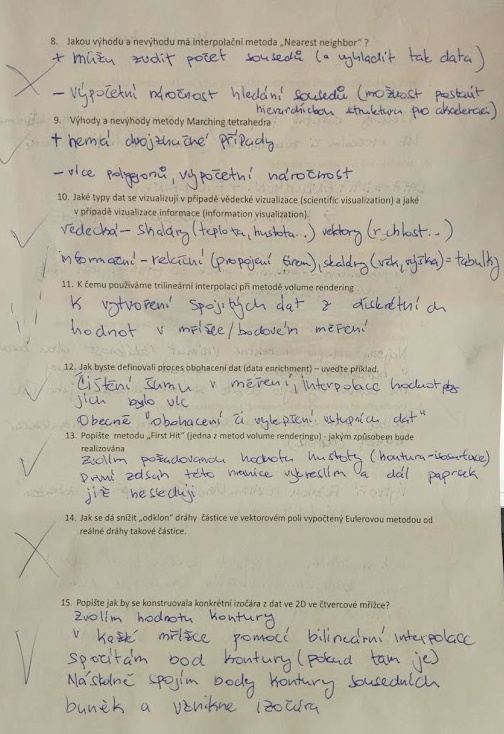 8. Jakou výhodu a nevýhodu má interpolační metoda „Nearest neighbor“?
+ můžu zvolit počet sousedů (a vyhladit tak data)
- výpočetní náročnost hledání sousedů (možnost postavit
hierarchickou strukturu pro akceleraci)
9. Výhody a nevýhody metody Marching tetrahedra
+ nemá dvojznačné případy
- více polygonů, výpočetní náročnost
10. Jaké typy dat se vizualizují v případě vědecké vizualizace (scientific visualization) a jaké
v případě vizualizace informace (information visualization).
vědecká - skaláry (teplota, hustota...) vektory (rychlost...)
informační - relační (propojení firem), skaláry (věk, výška) = tabulky
11. K čemu používáme trilineární interpolaci při metodě volume rendering
K vytvoření spojitých dat z diskrétních
hodnot v mřížce/bodovém měření
12. Jak byste definovali proces obohacení dat (data enrichment) – uveďte příklad.
Čištění šumu v měření, interpolace hodnot aby
jich bylo víc
Obecně "obohacení či vylepšení vstupních dat"
13. Popište metodu „First Hit“ (jedna z metod volume renderingu) - jakým způsobem bude
realizována
Zvolím požadovanou hodnotu hustoty (kontura-isosurface)
První zásah této hranice vykreslím a dál paprsek
již nesleduji
14. Jak se dá snížit „odklon“ dráhy částice ve vektorovém poli vypočtený Eulerovou metodou od
reálné dráhy takové částice.
15. Popište jak by se konstruovala konkrétní izočára z dat ve 2D ve čtvercové mřížce?
Zvolím hodnotu kontury
V každé mřížce pomocí bilineární interpolace
spočítám bod kontury (pokud tam je)
Následně spojím body kontury sousedních
buněk a vznikne izočára